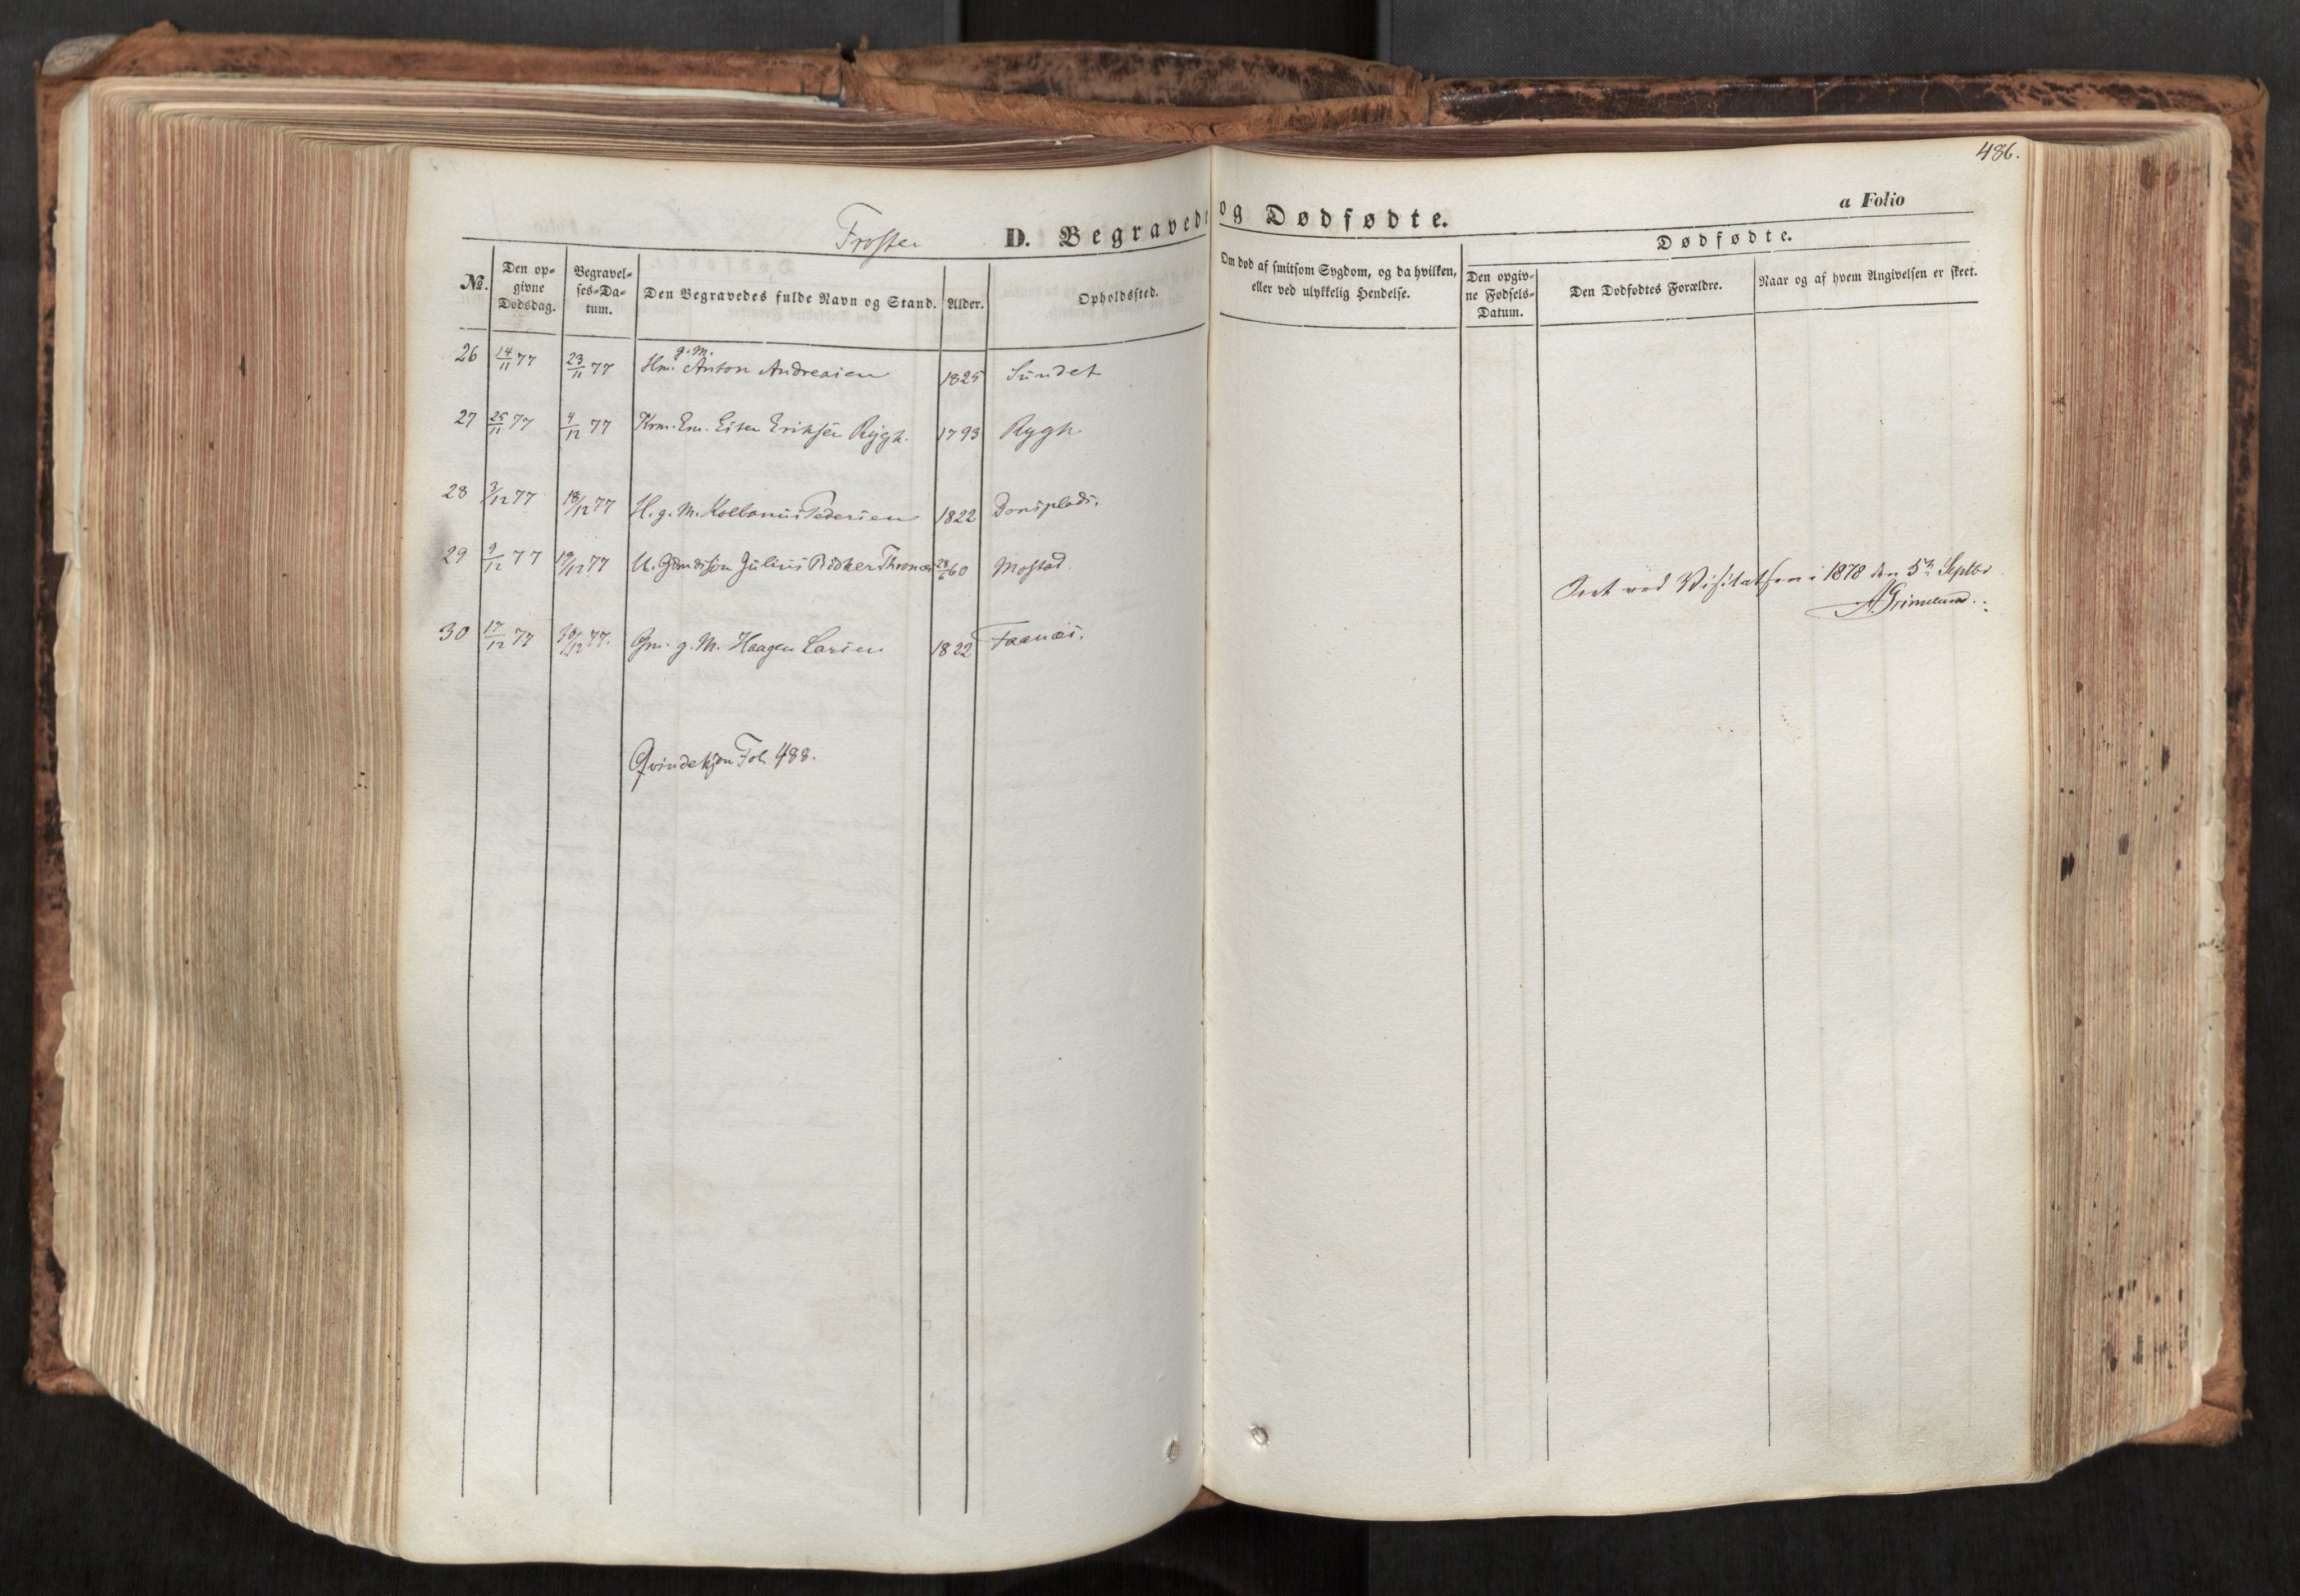 486.
Frosten D. Begravede og Dødfødte. a Folio
No. Den opgivne Dødsdag. Begravelses-Datum. Den Begravedes fulde Navn og Stand. Alder. Opholdssted. Om død af smitsom Sygdom, og da hvilken, eller ved ulykkelig Hendelse. Dødfødte. Den opgivne Fødsels-Datum. Den Dødfødtes Forældre. Naar og af hvem Angivelsen er skeet.
g. M.
26 14/11 77 23/11 77 Hm. Anton Andreasen 1825 Sundet
27 25/11 77 4/12 77 Krm. Em. Eriksen Rygh. 1793 Rygh
28 3/12 77 18/12 77 H. g. M. Kolbanus Pedersen 1822
29 9/12 77 19/12 77 U. Julius 28/6 60 Mostad
30 17/12 77 30/12 77. Gm. g. M. Haagen Larsen 1822 Faanæs.
Qvindekjøn Fol. 488.
Seet ved Visitatsen i 1878 den 5te Septbr
A. Grimelund.